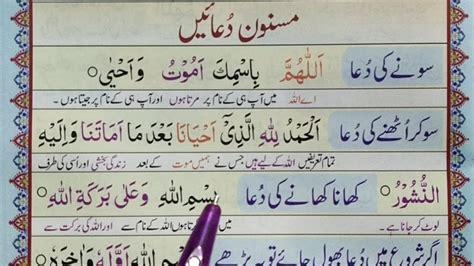 مسنون دُعائیں
سونے کی دُعا اَللّٰهُمَّ بِاسْمِكَ اَمُوْتُ وَاَحْيٰى
اے اللہ میں آپ ہی کے نام پر مرتا ہوں اور آپ ہی کے نام پر جیتا ہوں۔
سوکر اُٹھنے کی دُعا اَلْحَمْدُ لِلّٰهِ الَّذِىْٓ اَحْيَانَا بَعْدَ مَا اَمَاتَنَا وَاِلَيْهِ
تمام تعریفیں اللہ کے لیے ہیں جس نے ہمیں موت کے بعد زندگی بخشی اور اسی کی طرف
النُّشُوْرُ کھانا کھانے کی دُعا بِسْمِ اللّٰهِ وَعَلٰى بَرَكَةِ اللّٰهِ
لوٹ کر جانا ہے۔ میں اللہ کے نام سے اور اللہ کی برکت سے
اگر شروع میں دُعا بھول جائے تو یہ پڑھے بِسْمِ اللّٰهِ اَوَّلَهٗ وَاٰخِرَهٗ